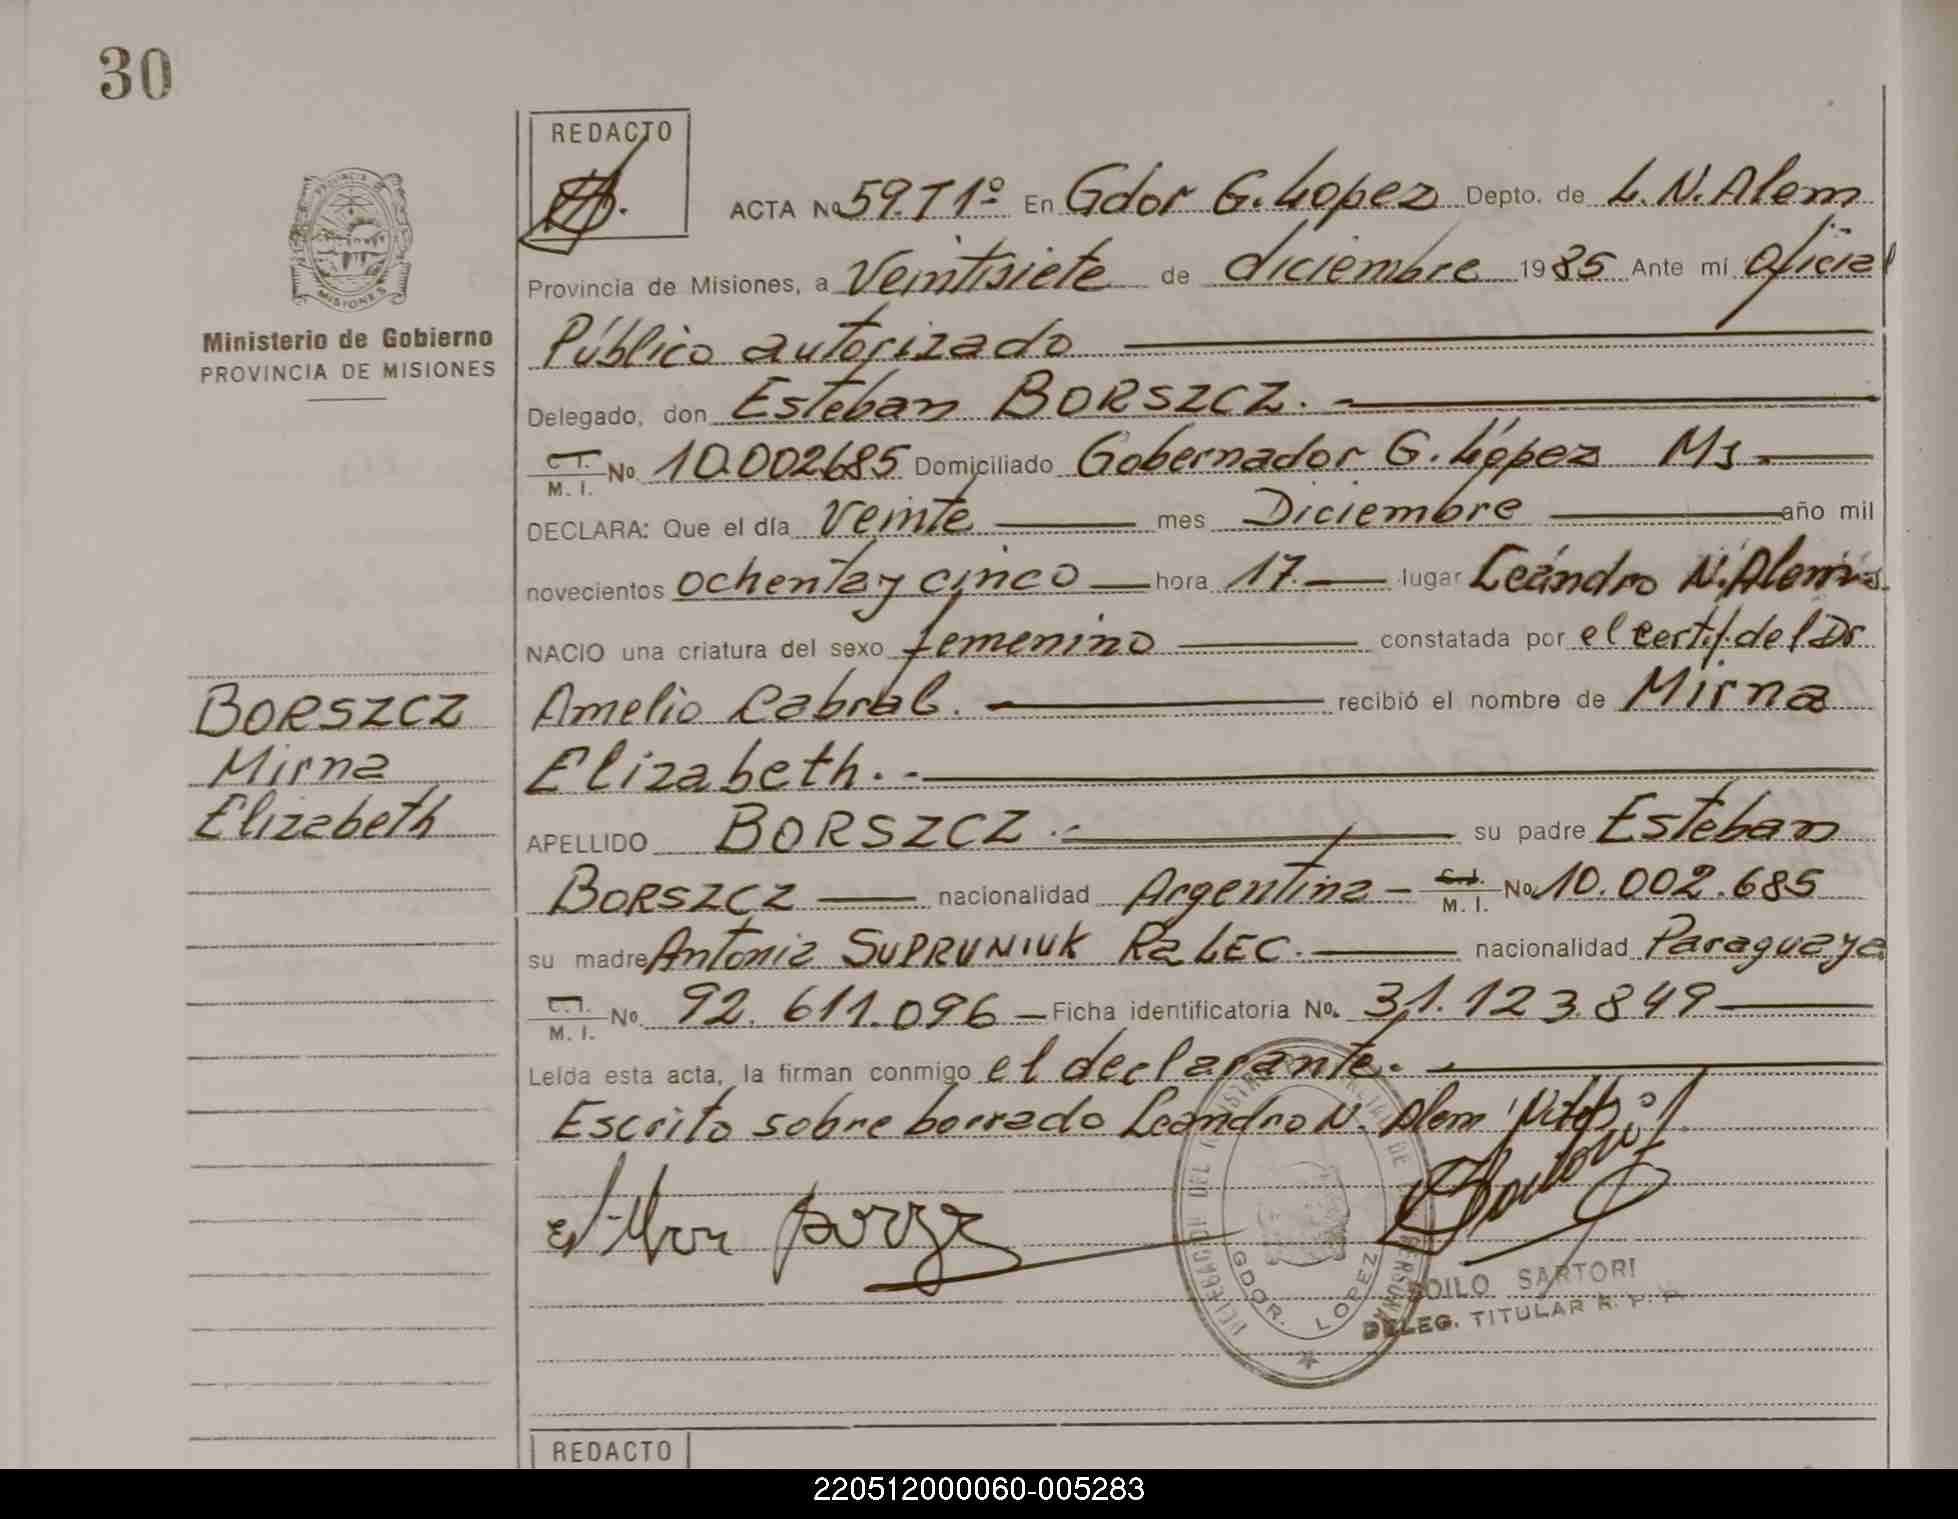 30
REDACTO
ACTA No 59. T 1º En Gdor G. Lopez Depto. de L. N. Alem
Provincia de Misiones, a Veintisiete de diciembre 1985 Ante mí Oficial
Público autorizado
Delegado, don Esteban BORSZCZ.
C. I. M. I. No. 10.002685 Domiciliado Gobernador G. López Ms.
DECLARA: Que el día Veinte mes Diciembre año mil
novecientos ochenta y cinco hora 17. lugar Leandro N. Alem
NACIO una criatura del sexo femenino constatada por el certif. del Dr.
Amelio Cabral. recibió el nombre de Mirna
Elizabeth.
APELLIDO BORSZCZ su padre Esteban
BORSZCZ nacionalidad Argentina C. I. M. I. No. 10.002.685
su madre Antonia SUPRUNIUK RaLEC. nacionalidad Paraguaya
C. I. M. I. No. 92.611.096 Ficha identificatoria No. 31.123.849
Leída esta acta, la firman conmigo el declarante.
Escrito sobre borrado Leandro N. Alem
PROVINCIA DE MISIONES
Ministerio de Gobierno
PROVINCIA DE MISIONES
BORSZCZ
Mirna
Elizabeth
GDOR. LOPEZ
SARTORI
DELEG. TITULAR R. P. P.
REDACTO
220512000060-005283